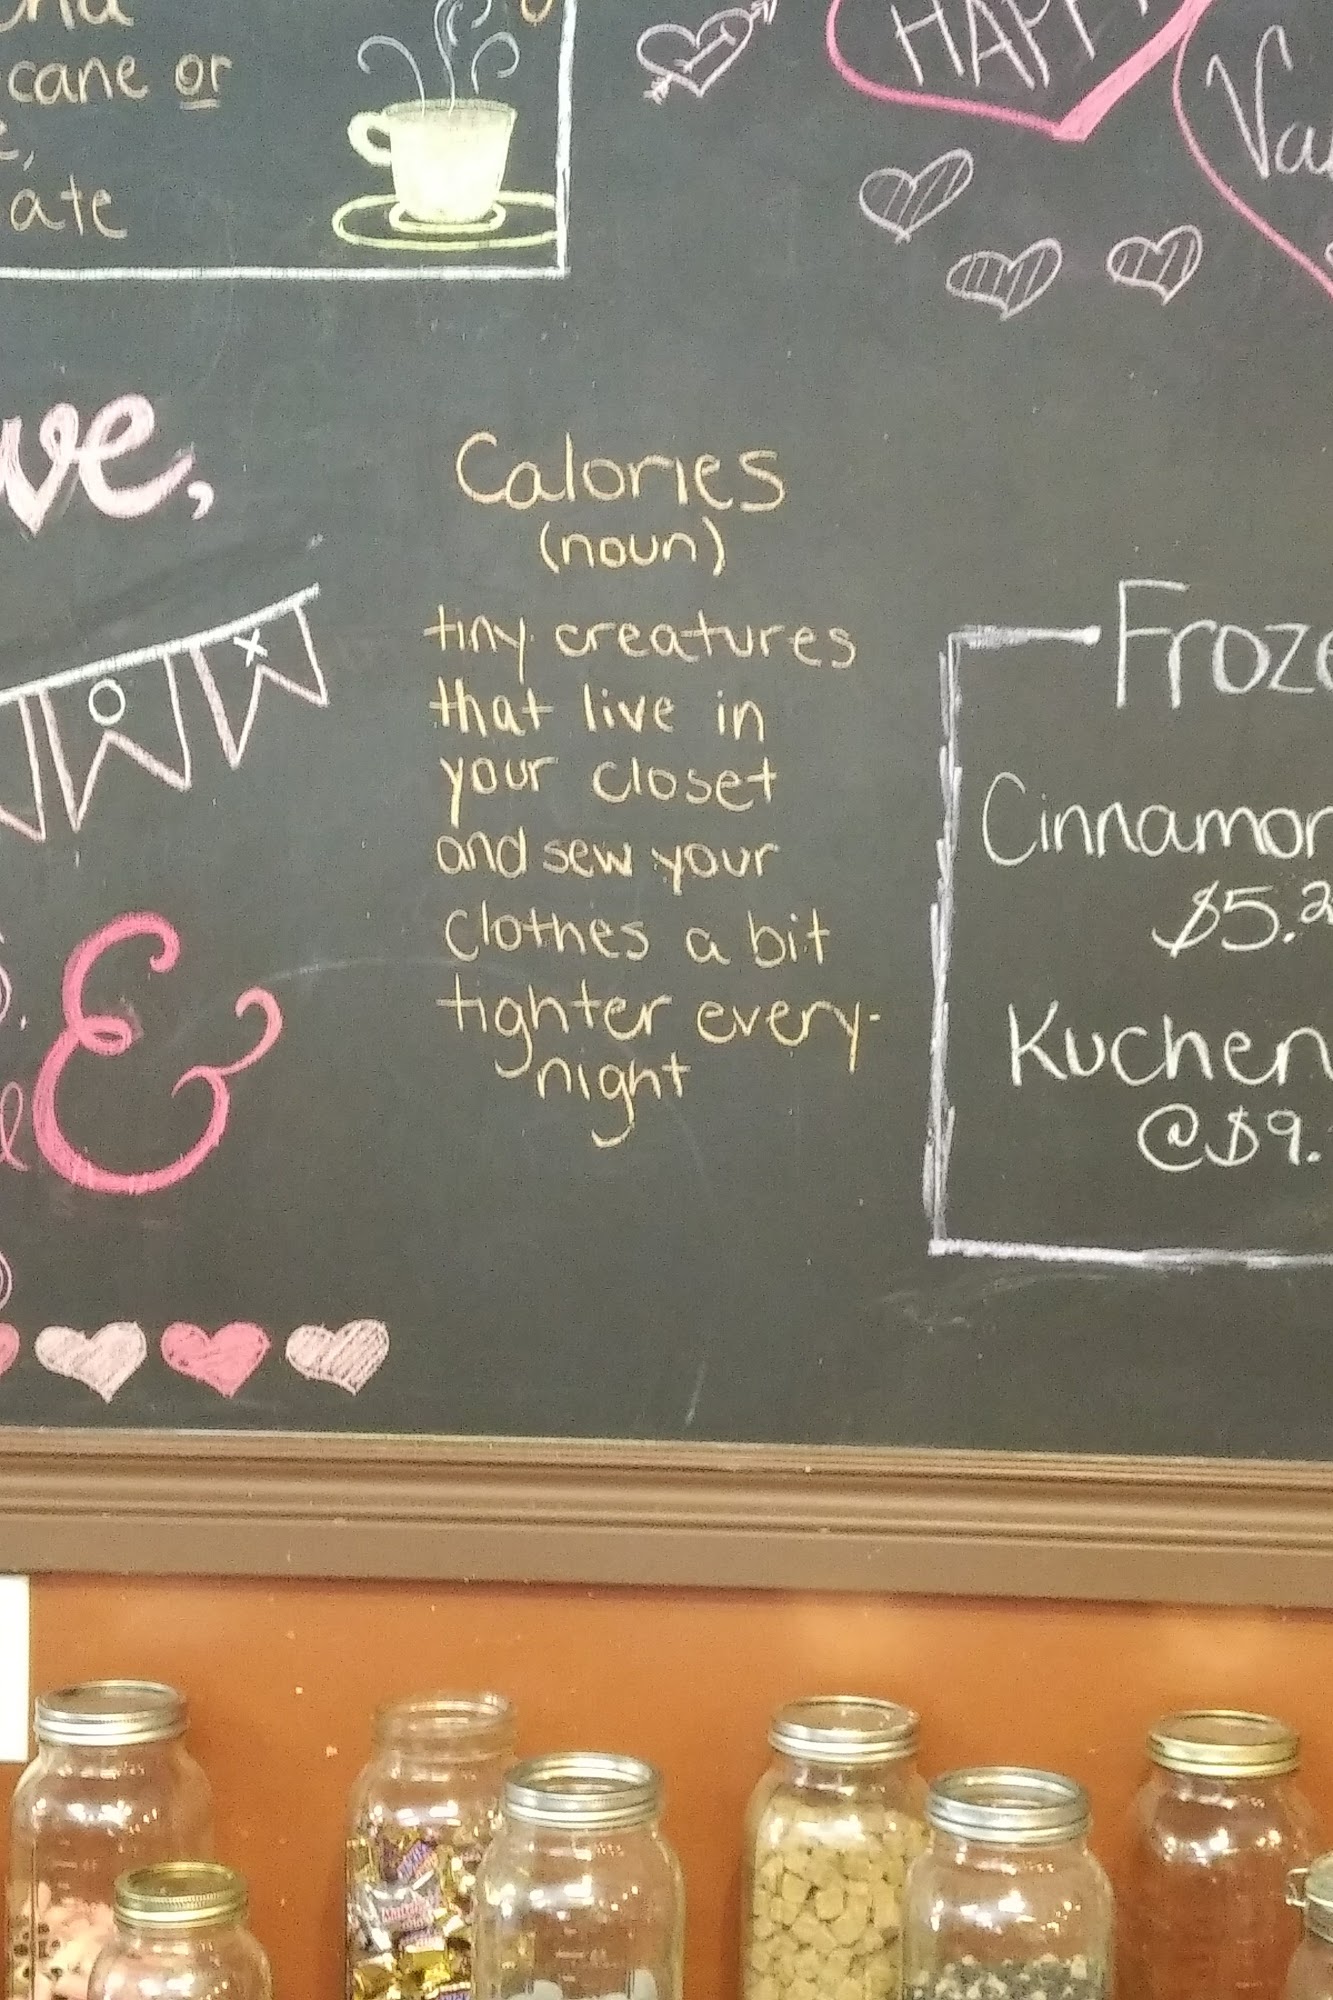 cane or
ate
HAPPY
ve,
O X
Calories
(noun)
tiny creatures
that live in
your closet
and sew your
clothes a bit
tighter every-
night
&
Froze
Cinnamon
$5.2
Kuchen
@$9.